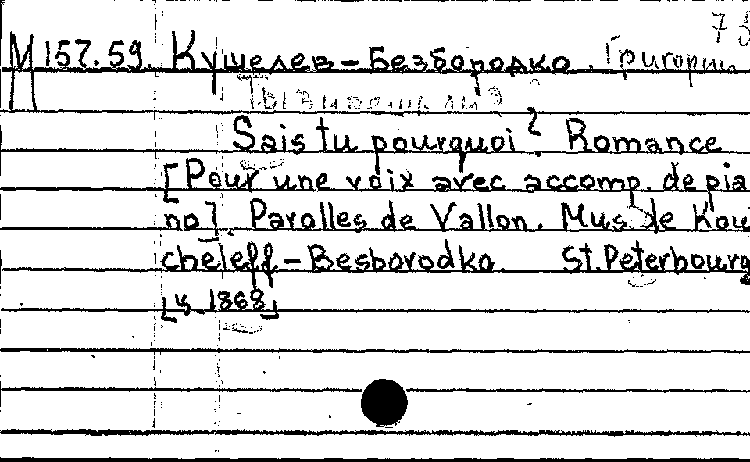 73
М 157.59. Кушелев-Безбородко. Григорий
Ты знаешь ли?
Sais tu pourquoi? Romance
[Pour une voix avec accomp. de pia
no]. Parolles de Vallon. Mus de Kou
cheleff-Besborodko. St.Peterbourg
[ч. 1868]